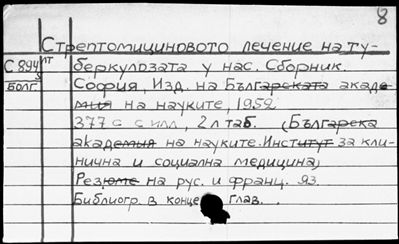 8
Стрептомициновото лечение на ту-
С 894 лт беркулозата у нас. Сборник.
5
болг. София, Изд. на Българската акаде-
мия на науките, 1952
377 с с илл, 2 л таб. (Българска
академия на науките. Институт за кли-
нична и социална медицина)
Резюме на рус. и франц. яз.
Библиогр. в конце глав.